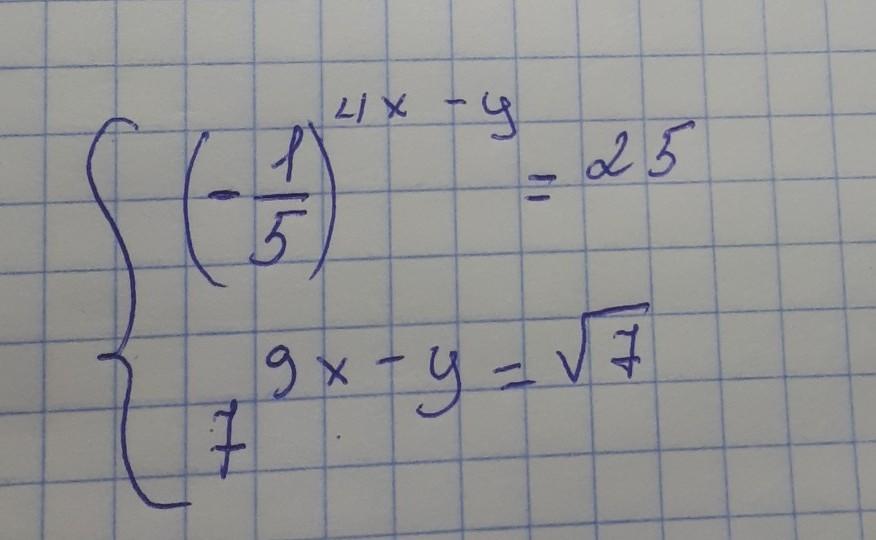 (-1/5)^(4x - y) = 25
7^(9x - y) = √7